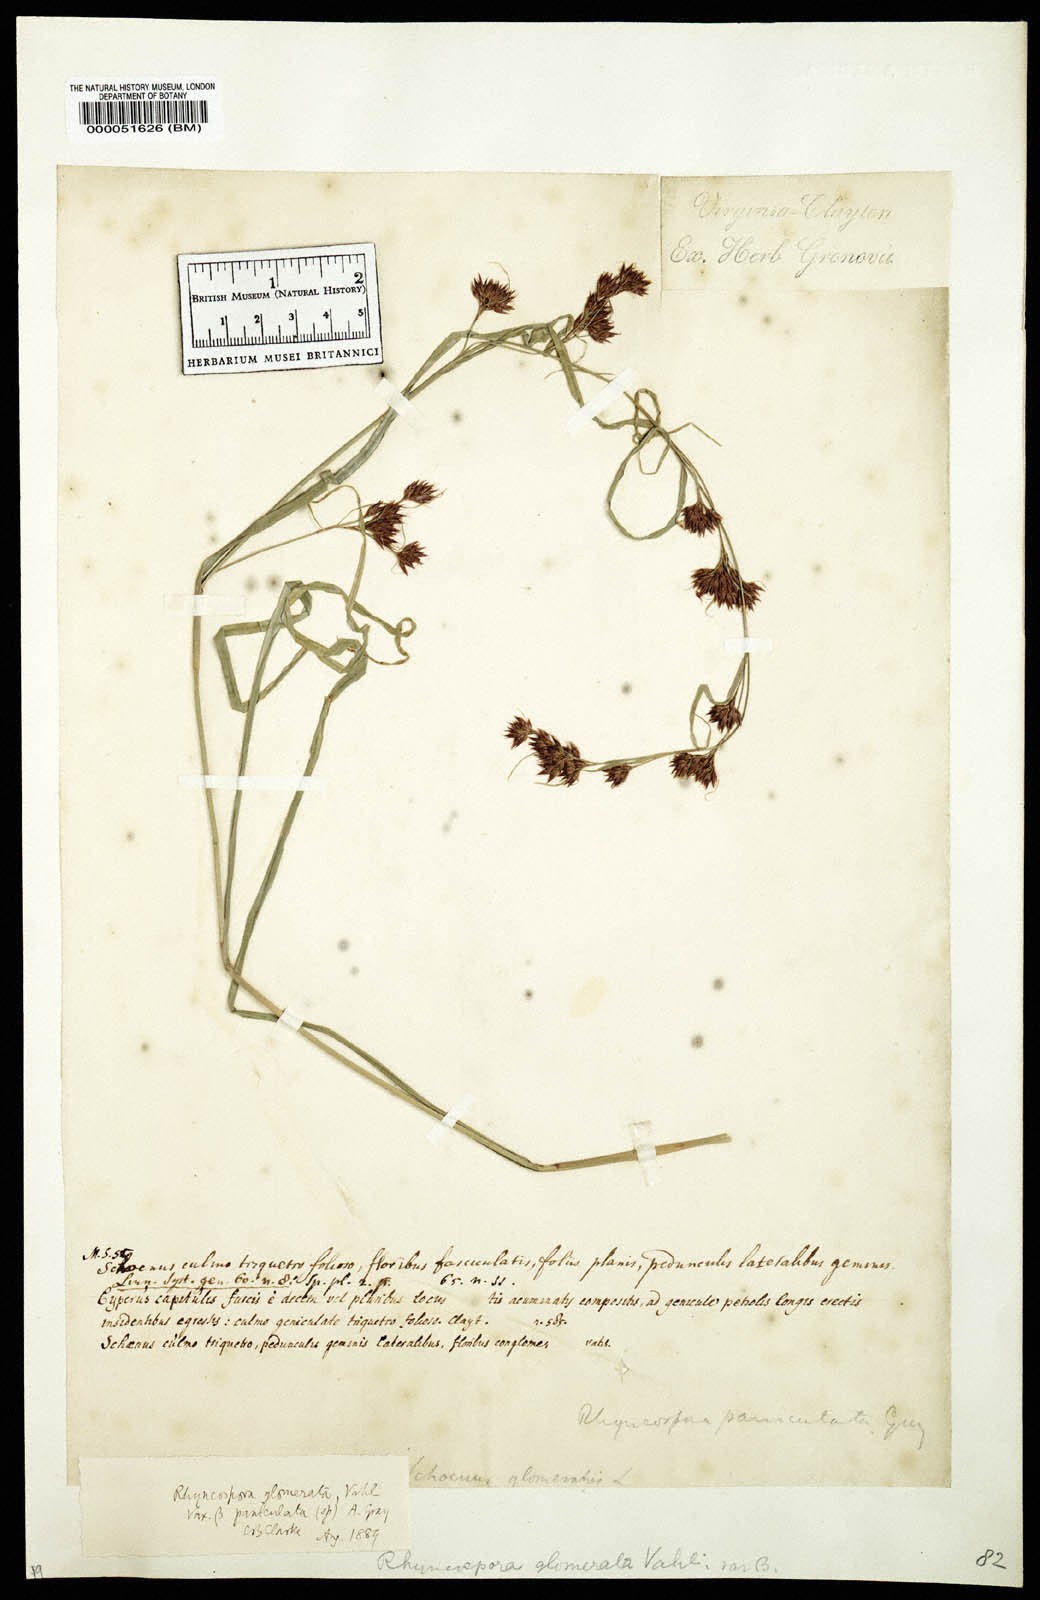 THE NATURAL HISTORY MUSEUM, LONDON
DEPARTMENT OF BOTANY
000051626 (BM)
Virginia-Clayton
Ex. Herb Gronovii
1 2
BRITISH MUSEUM (NATURAL HISTORY)
1 2 3 4 5
HERBARIUM MUSEI BRITANNICI
Schoenus culmo triquetro folioso, floribus fasciculatis, foliis planis, pedunculis lateralibus geminis.
Linn. Syst. gen. 60. n. 8. Sp. pl. 65. n. 11.
Cyperus capitulis fuscis è decem vel pluribus locus tis acuminatis compositis, ad genicula petiolis longis erectis
insidentibus egressis: culmo geniculato triquetro folioso. Clayt.
Schœnus culmo triquetro, pedunculis geminis lateralibus, floribus conglomer
Rhyncospora paniculata Gray
Schoenus glomeratus L
Rhyncospora glomerata, Vahl
Var. β paniculata (sp) A. Gray
CBClarke Aug. 1889
Rhyncospora glomerata Vahl. var B.
82